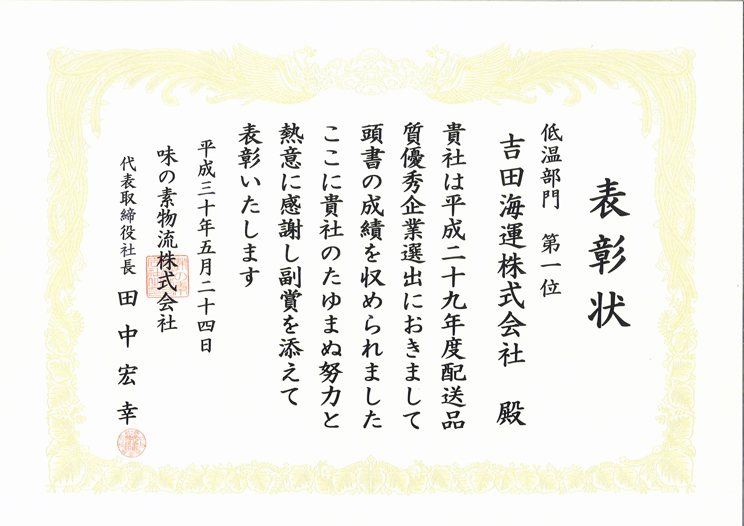 表彰状
低温部門　第一位
吉田海運株式会社　殿
貴社は平成二十九年度配送品
質優秀企業選出におきまして
頭書の成績を収められました
ここに貴社のたゆまぬ努力と
熱意に感謝し副賞を添えて
表彰いたします
平成三十年五月二十四日
味の素物流株式会社
代表取締役社長　田中宏幸